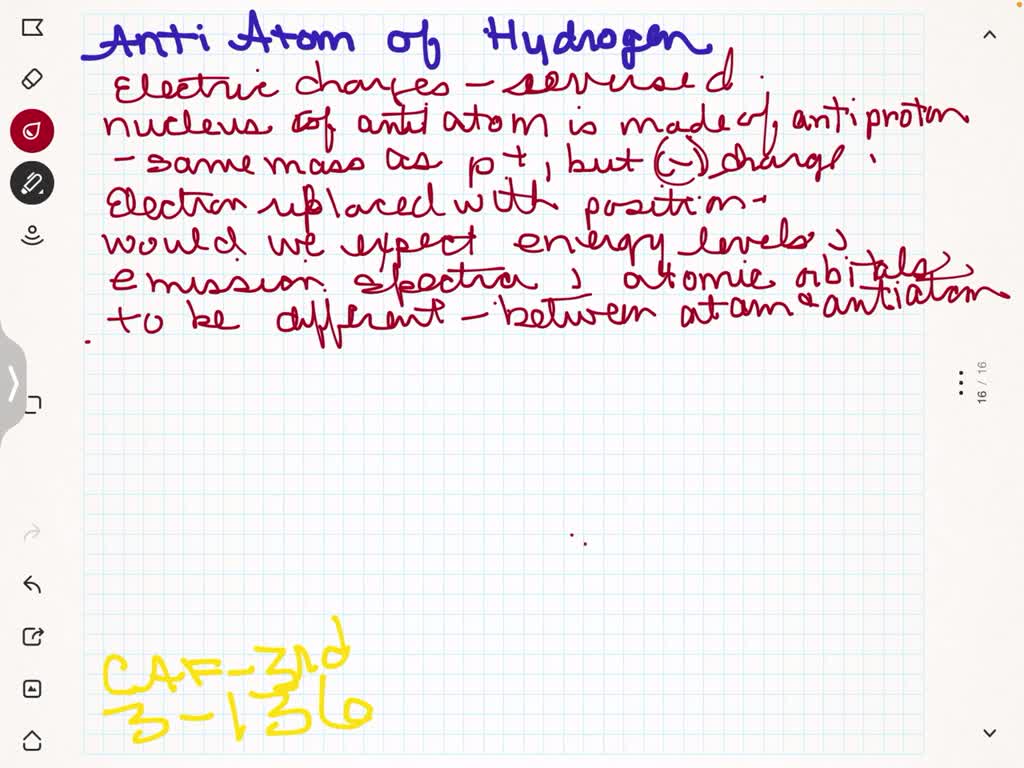 Anti Atom of Hydrogen
Electric charges - reversed.
nucleus of anti atom is made of antiproton
- same mass as p+, but (-) charge.
Electron replaced with positron.
would we expect energy levels,
emission spectra, atomic orbitals,
to be different - between atom & antiatom
16 / 16
CAF - 3rd
3 - 136